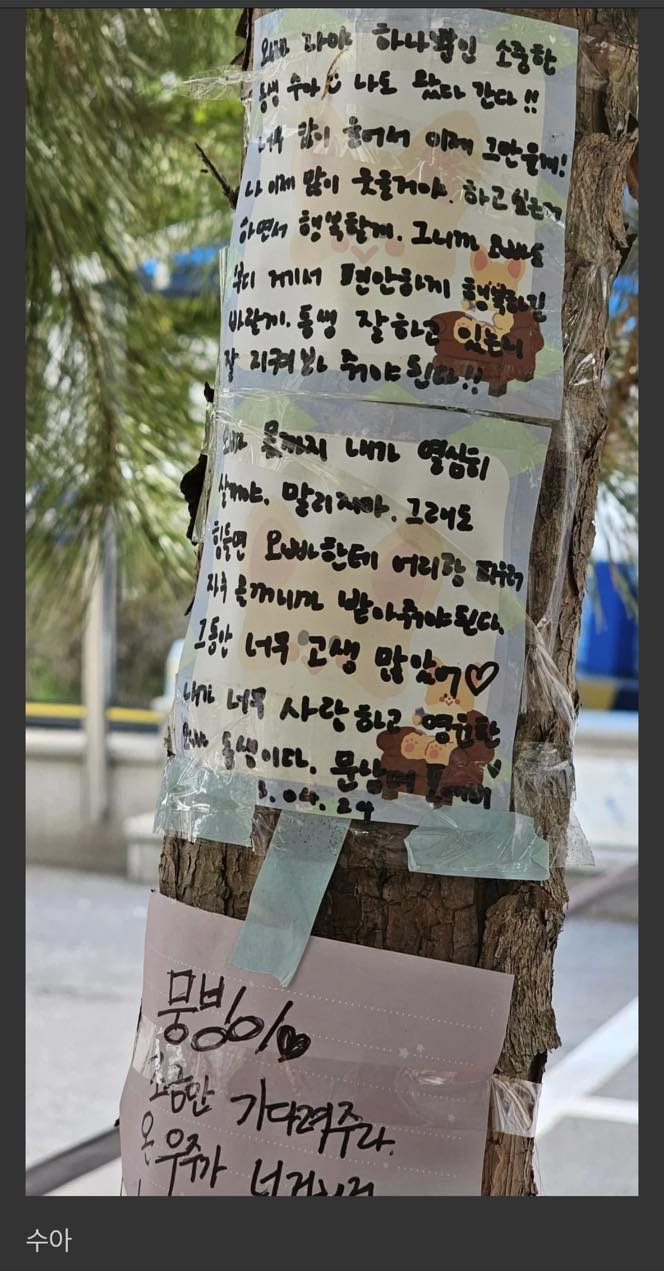 오빠 나야 하나뿐인 소중한
동생 수아 나도 왔다 간다!!
너무 많이 울어서 이제 그만울게!
나 이제 많이 웃을거야. 하고싶은거
하면서 행복할게. 그니까 오빠도
부디 거기서 편안하게 행복하길
바랄게. 동생 잘하고 있으니
잘 지켜봐 줘야된다!!
오빠 몫까지 내가 열심히
살꺼야. 말리지마. 그래도
힘들면 오빠한테 어리광 피우러
자주 올꺼니까 받아줘야된다.
그동안 너무 고생 많았어♡
내가 너무 사랑하고 영원한
오빠 동생이다.
.04.24
뭉빙이♥
조금만 기다려주라.
온 우주가
수아